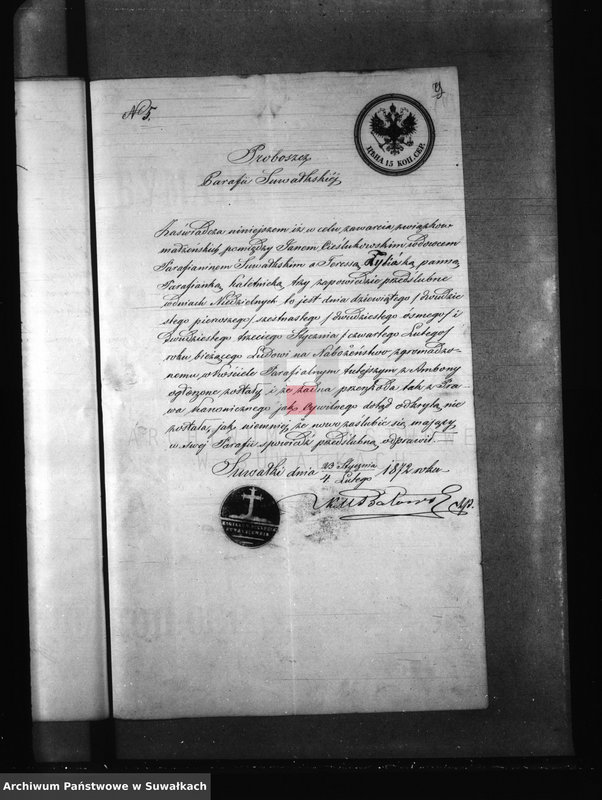 № 5.
9
ЦѢНА 15 КОП. СЕР.
Proboszcz
Parafii Suwałkskiéj
Zaświadcza niniejszem iż w celu zawarcia związków
małżeńskich pomiędzy Janem Cieslukowskim wdowcem
Parafianinem Suwałkskim a Teressą panną
Parafianką Kaletnicką trzy zapowiedzie przedślubne
w dniach Niedzielnych to jest dnia dziewiątego / dwudzie
stego pierwszego / szesnastego / dwudziestego ósmego / i
dwudziestego trzeciego Stycznia / czwartego Lutego /
roku bieżącego Ludowi na Nabożeństwo zgromadzo-
nemu w kościele Parafialnym tutejszym z Ambony
ogłoszone zostały i że żadna przeszkoda tak z Pra-
wa kanonicznego jak cywilnego dotąd odkrytą nie
została, jak niemniej że nowozaślubić się mający
w swej Parafii spowiedź przedślubną odprawił.
Suwałki dnia 23 Stycznia / 4 Lutego 1872 roku
Archiwum Państwowe w Suwałkach